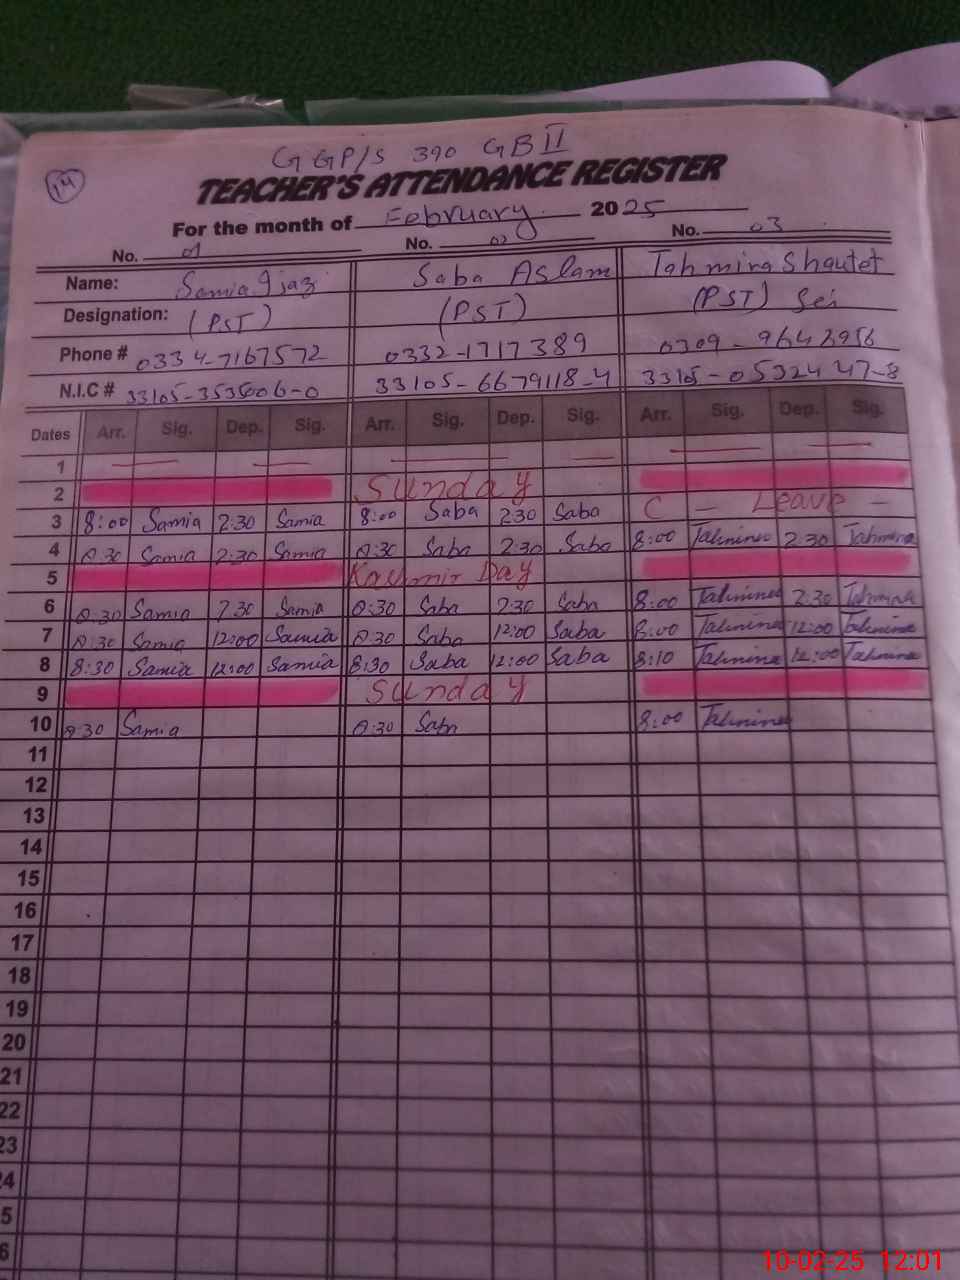 14
GGP/S 390 GB II
TEACHER'S ATTENDANCE REGISTER
For the month of February 2025
No. 01 No. 02 No. 03
Name: Samia Ijaz Saba Aslam Tahmina Shautet
Designation: (PST) (PST) (PST) Sei
Phone # 0334-7167572 0332-1717389 0309-9643956
N.I.C # 33105-3535606-0 33105-6679118-4 33105-0532447-8
Dates Arr. Sig. Dep. Sig. Arr. Sig. Dep. Sig. Arr. Sig. Dep. Sig.
1
2 Sunday
3 8:00 Samia 2:30 Samia 8:00 Saba 2:30 Saba C - Leave -
4 8:30 Samia 2:30 Samia 8:30 Saba 2:30 Saba 8:00 Tahmina 2:30 Tahmina
5 Kashmir Day
6 8:30 Samia 2:30 Samia 8:30 Saba 2:30 Saba 8:00 Tahmina 2:30 Tahmina
7 8:30 Samia 12:00 Samia 8:30 Saba 12:00 Saba 8:00 Tahmina 12:00 Tahmina
8 8:30 Samia 12:00 Samia 8:30 Saba 12:00 Saba 8:10 Tahmina 12:00 Tahmina
9 Sunday
10 8:30 Samia 8:30 Saba 8:00 Tahmina
11
12
13
14
15
16
17
18
19
20
21
22
23
24
5
6
10-02-25 12:01